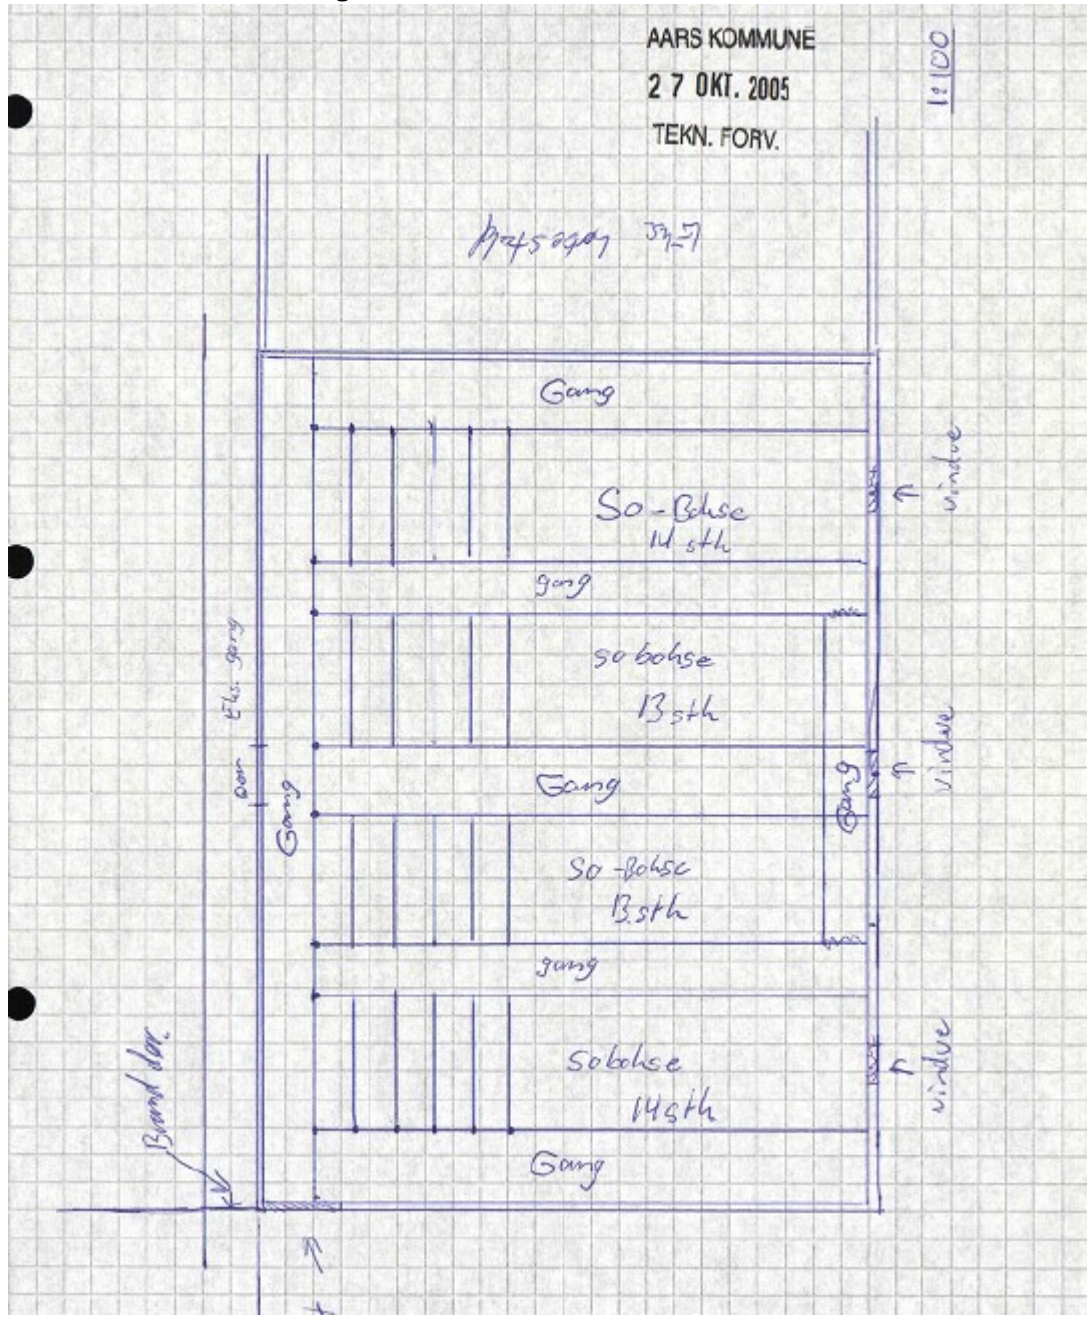 AARS KOMMUNE
27 OKT. 2005
TEKN. FORV.
1:100
Gang
So-Bohse
14 sth
vindue
gang
so bohse
13 sth
Eks. gang
Gang
Gang
Gang
vindue
So-Bohse
13 sth
gang
Sobohse
14 sth
vindue
Brand dør
Gang